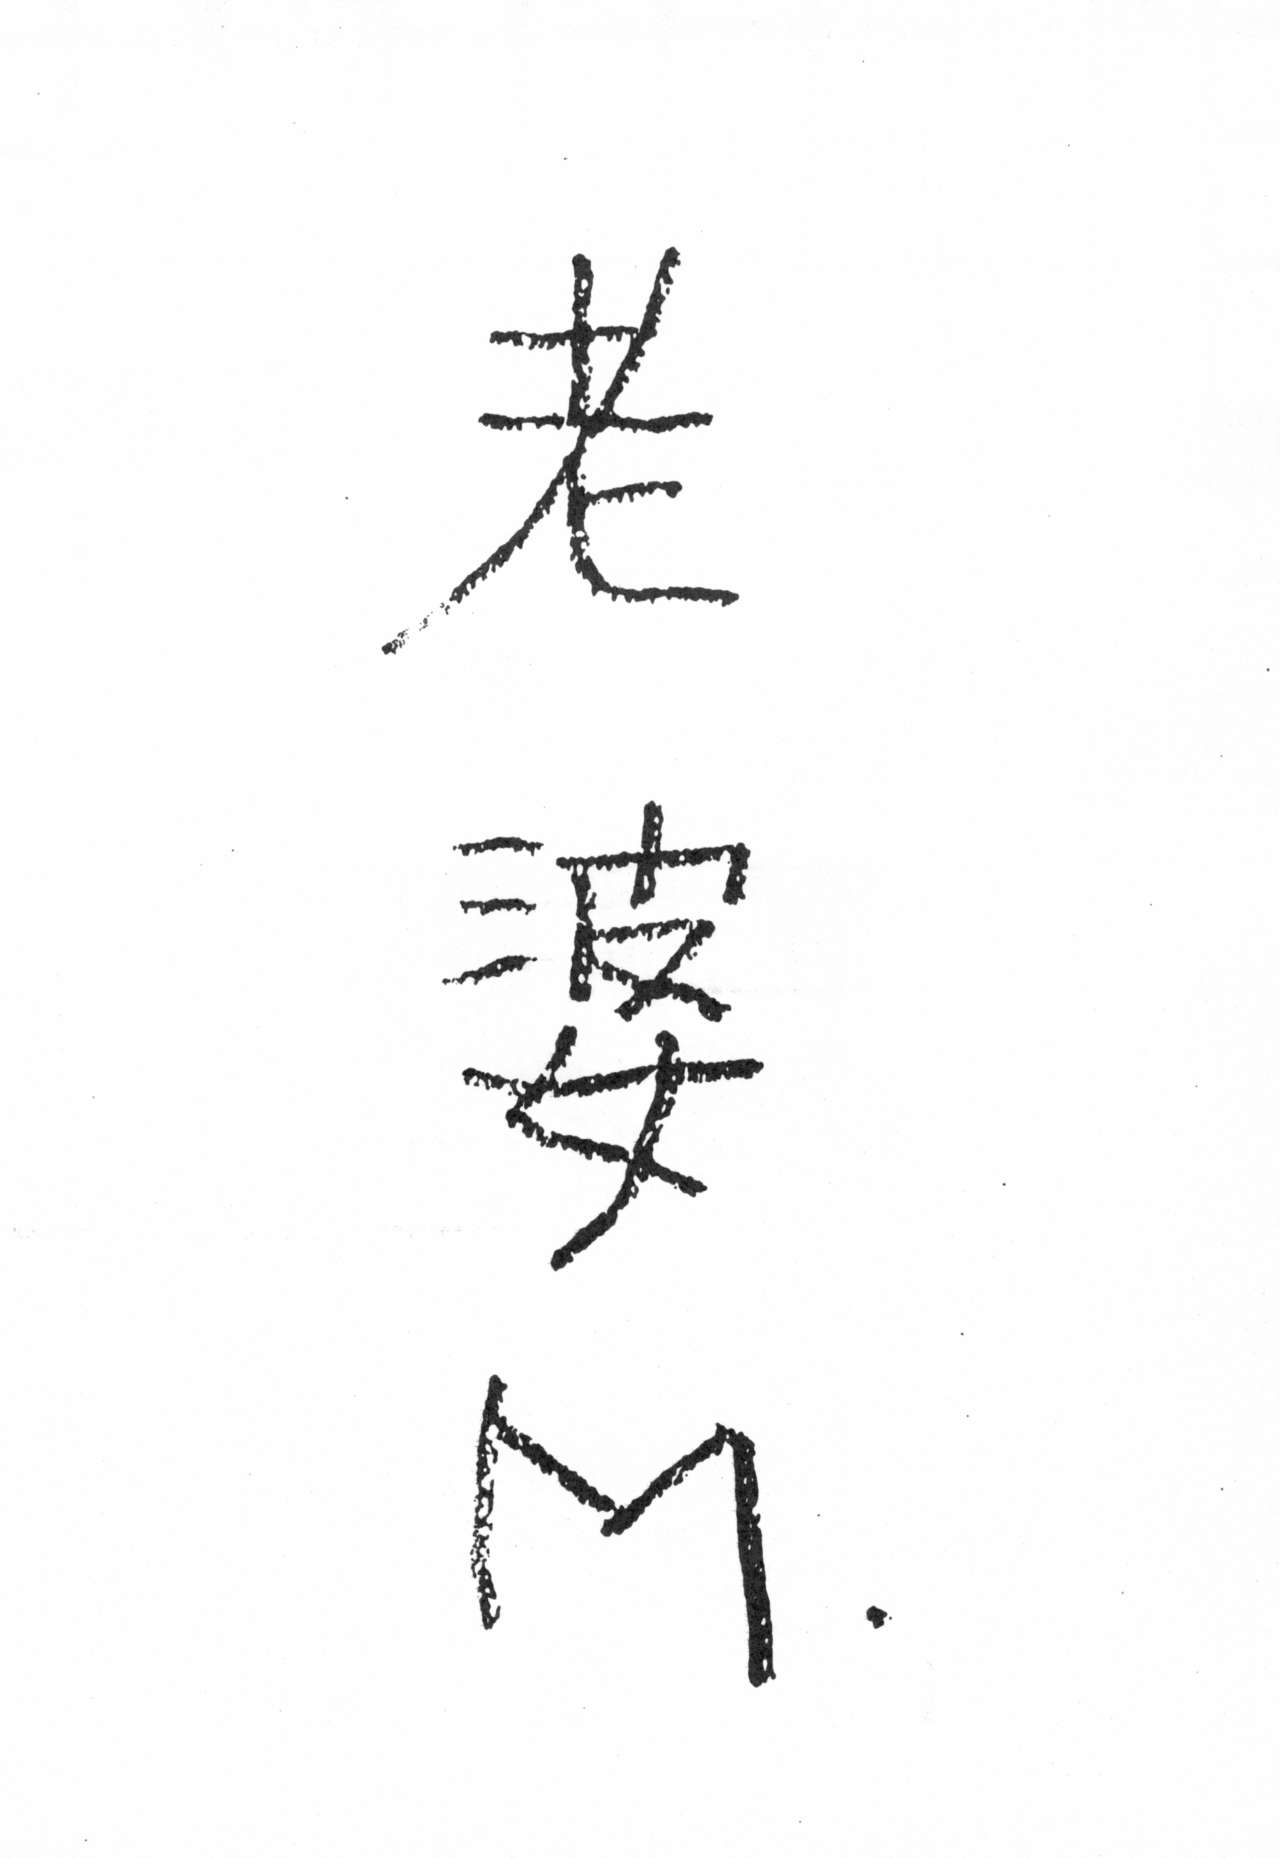 老婆M.